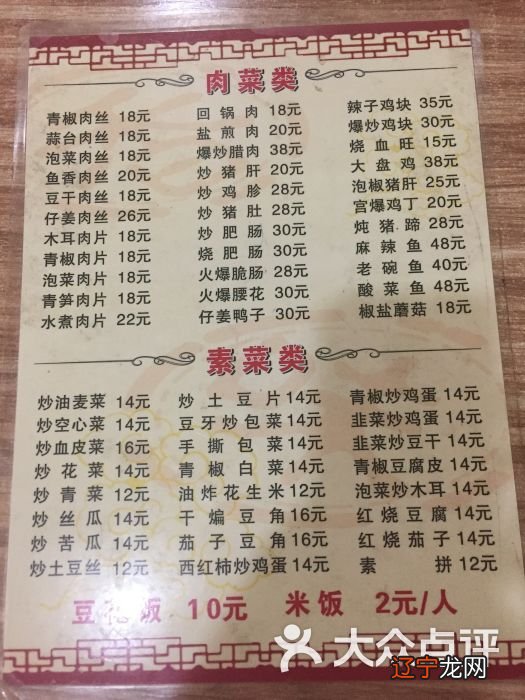 肉菜类
青椒肉丝 18元 回锅肉 18元 辣子鸡块 35元
蒜台肉丝 18元 盐煎肉 20元 爆炒鸡块 30元
泡菜肉丝 18元 爆炒腊肉 38元 烧血旺 15元
鱼香肉丝 20元 炒猪肝 20元 大盘鸡 38元
豆干肉丝 18元 炒鸡胗 28元 泡椒猪肝 25元
仔姜肉丝 26元 炒猪肚 28元 宫爆鸡丁 20元
木耳肉片 18元 炒肥肠 30元 炖猪蹄 28元
青椒肉片 18元 烧肥肠 30元 麻辣鱼 48元
泡菜肉片 18元 火爆脆肠 28元 老碗鱼 40元
青笋肉片 18元 火爆腰花 30元 酸菜鱼 48元
水煮肉片 22元 仔姜鸭子 30元 椒盐蘑菇 18元
素菜类
炒油麦菜 14元 炒土豆片 14元 青椒炒鸡蛋 14元
炒空心菜 14元 豆牙炒包菜 14元 韭菜炒鸡蛋 14元
炒血皮菜 16元 手撕包菜 14元 韭菜炒豆干 14元
炒花菜 14元 青椒白菜 14元 青椒豆腐皮 14元
炒青菜 12元 油炸花生米 12元 泡菜炒木耳 14元
炒丝瓜 14元 干煸豆角 16元 红烧豆腐 14元
炒苦瓜 14元 茄子豆角 16元 红烧茄子 14元
炒土豆丝 12元 西红柿炒鸡蛋 14元 素拼 12元
豆花饭 10元 米饭 2元/人
大众点评
辽宁龙网